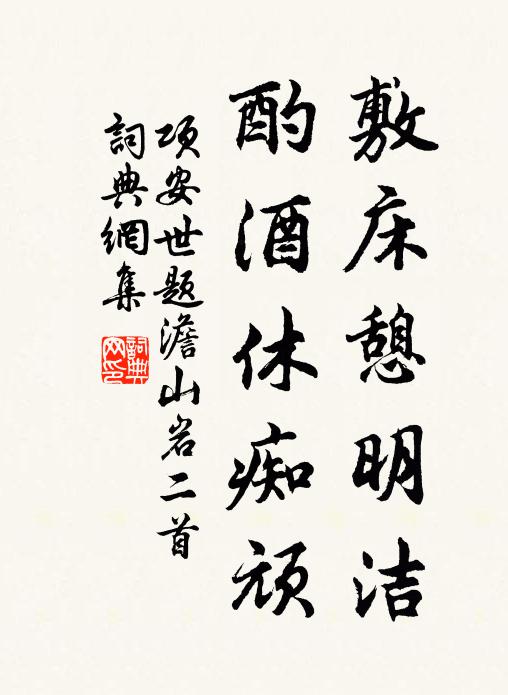 敷床憩明洁
酌酒休痴顽
项安世题澹山岩二首
詞典網集
詞典网印